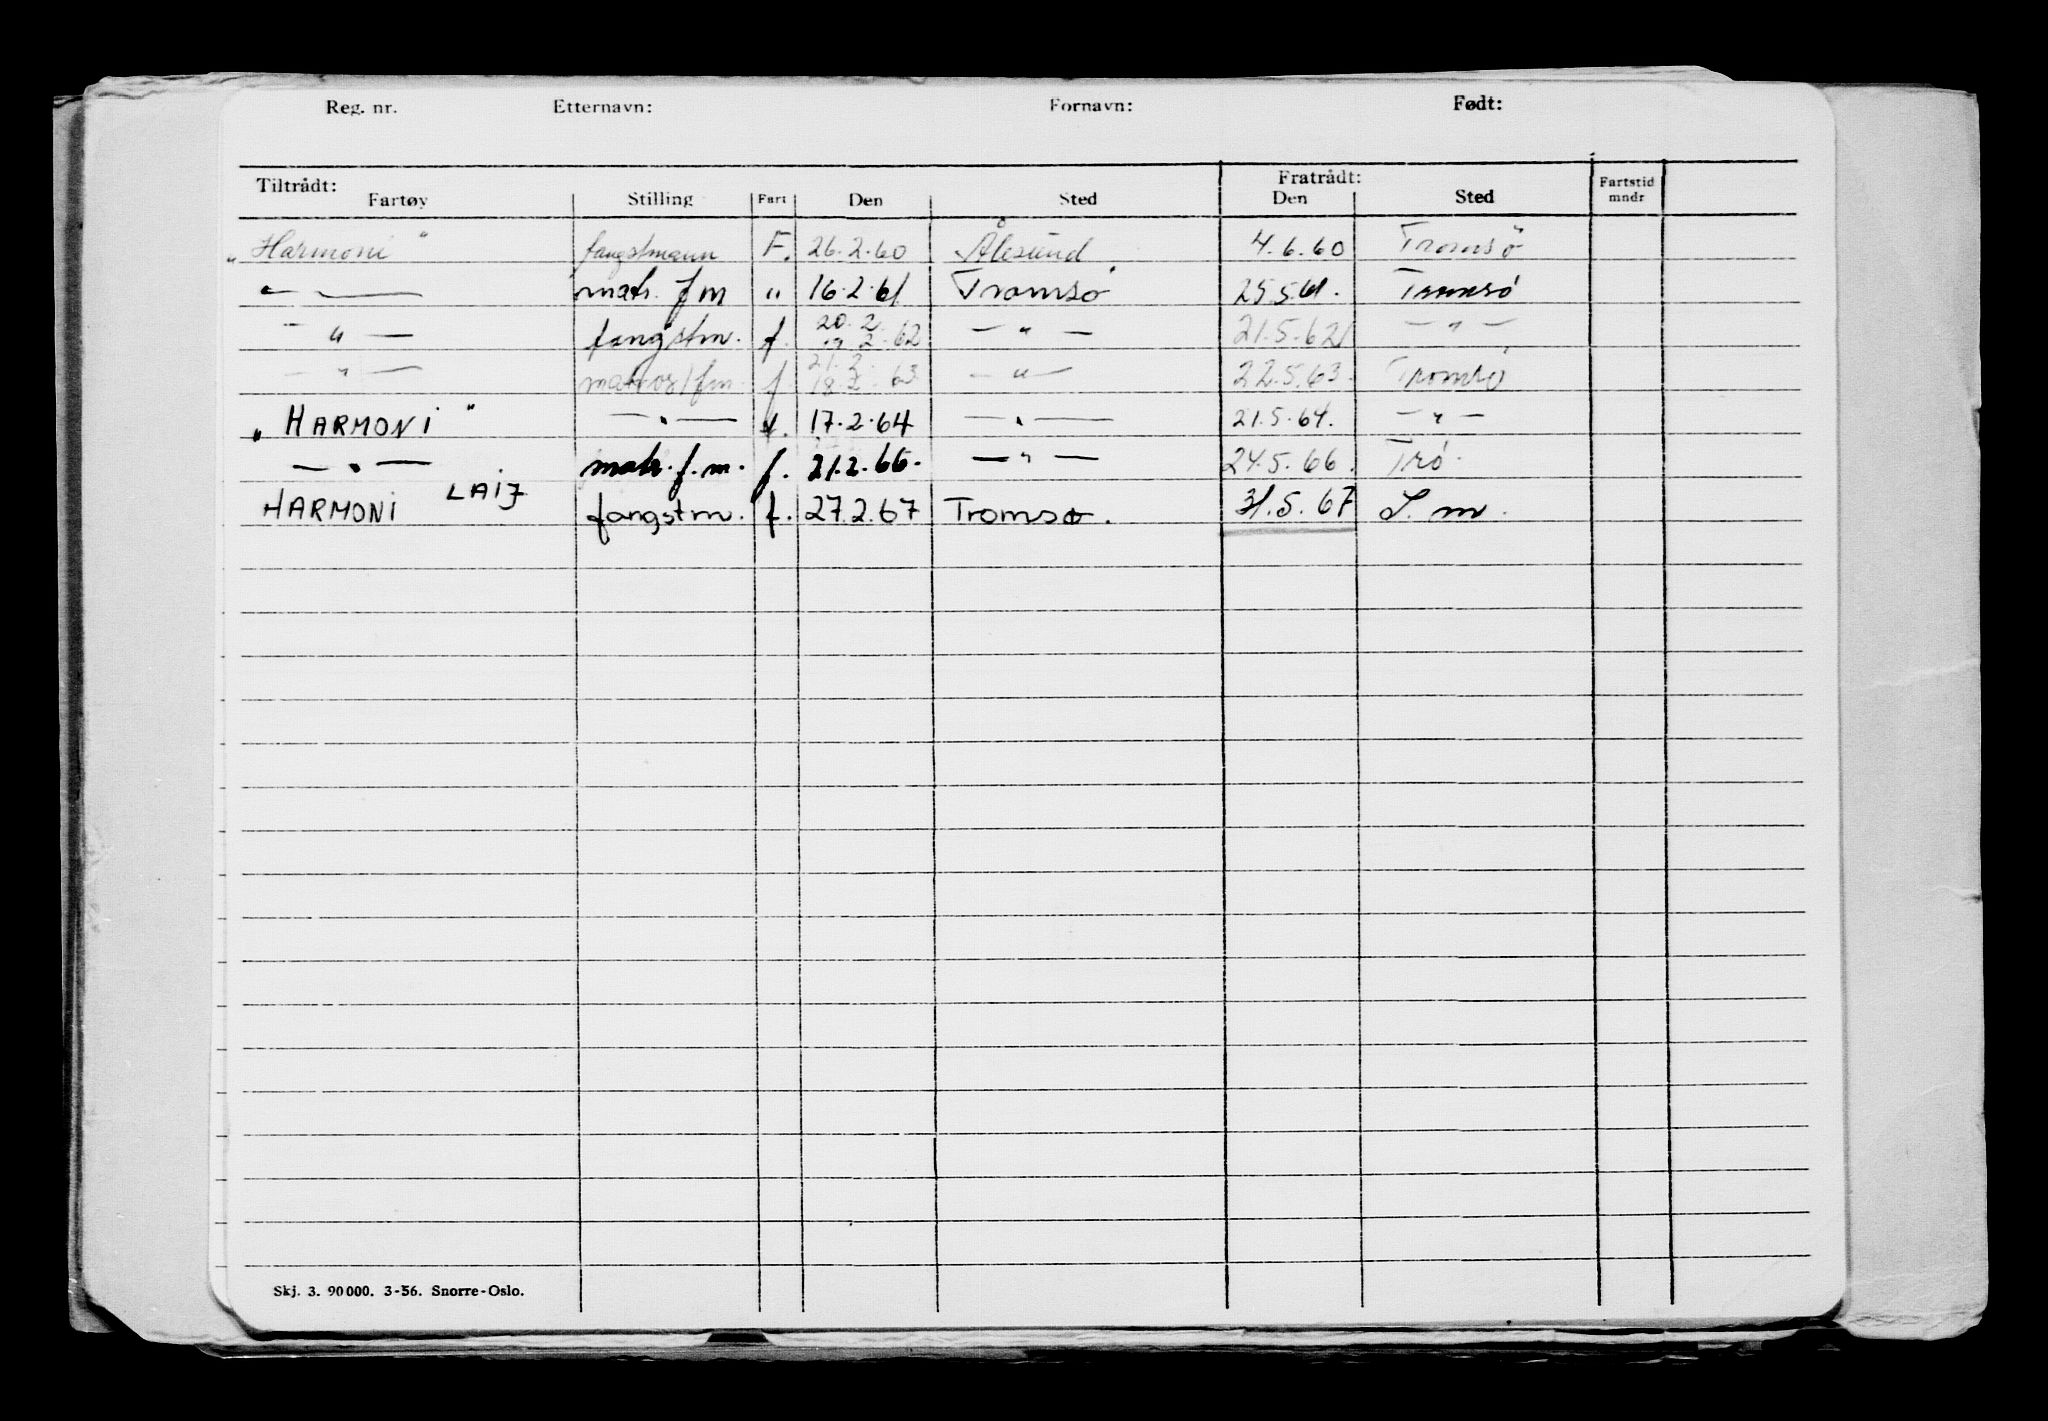 Reg. nr. Etternavn: Fornavn: Født:
Tiltrådt: Fratrådt:
Fartøy Stilling Fart Den Sted Den Sted Fartstid mndr
"Harmoni" fangstmann F. 26.2.60 Ålesund 4.6.60 Tromsö
" — matr. fm " 16.2.61 Tromsø 25.5.61. Tromsø
— " — fangstm. f. 20.2. 2.62 — " — 21.5.62 — " —
— " — matros/fm. f 21.2. 18.2.63 — " — 22.5.63. Tromsø
"HARMONI" — " — f. 17.2.64 — " — 21.5.64. — " —
— " — matr. f.m. f. 21.2.66. — " — 24.5.66. Trø.
HARMONI LAIJ fangstm. f. 27.2.67 Tromsø. 31.5.67 S.m.
Skj. 3. 90000. 3-56. Snorre-Oslo.